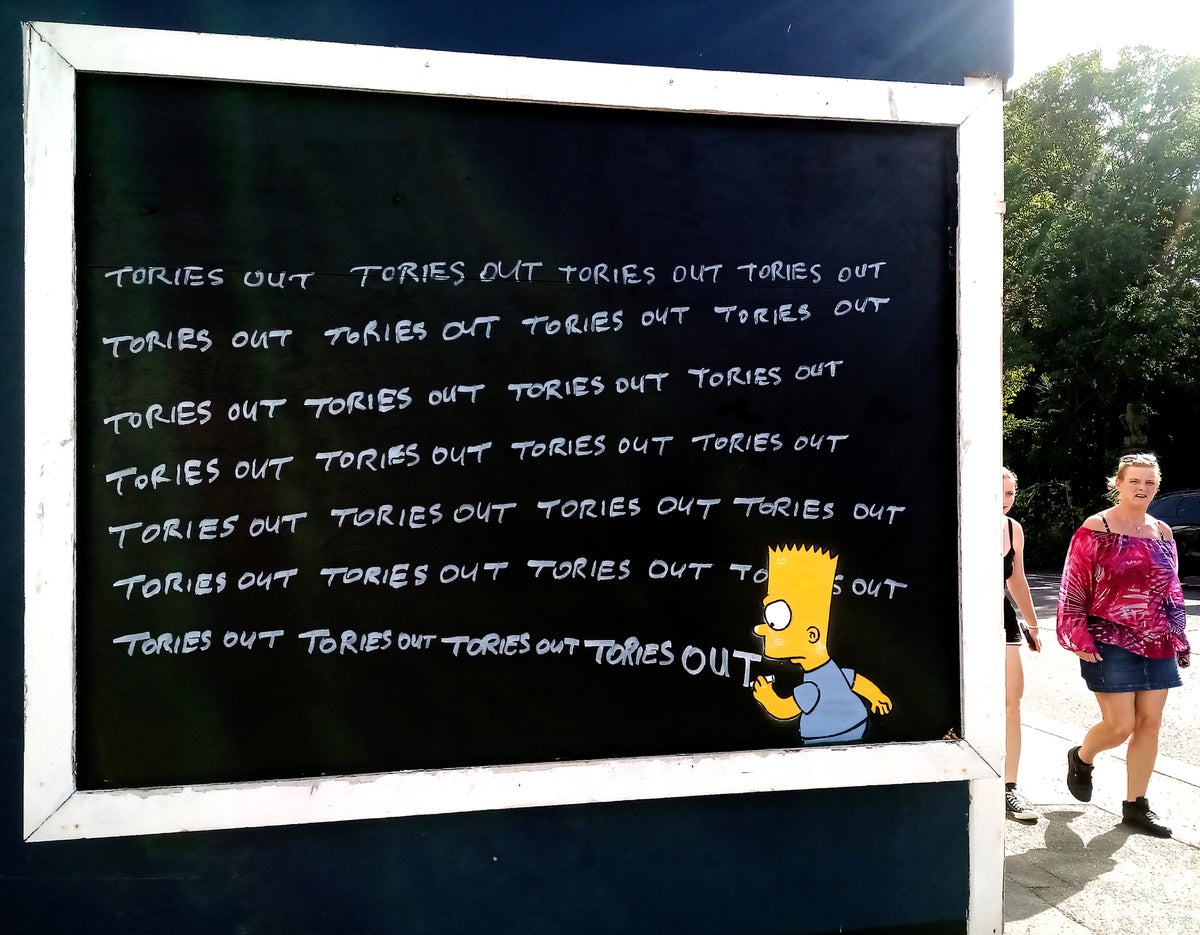 TORIES OUT TORIES OUT TORIES OUT TORIES OUT
TORIES OUT TORIES OUT TORIES OUT TORIES OUT
TORIES OUT TORIES OUT TORIES OUT TORIES OUT
TORIES OUT TORIES OUT TORIES OUT TORIES OUT
TORIES OUT TORIES OUT TORIES OUT TORIES OUT
TORIES OUT TORIES OUT TORIES OUT TO S OUT
TORIES OUT TORIES OUT TORIES OUT TORIES OUT